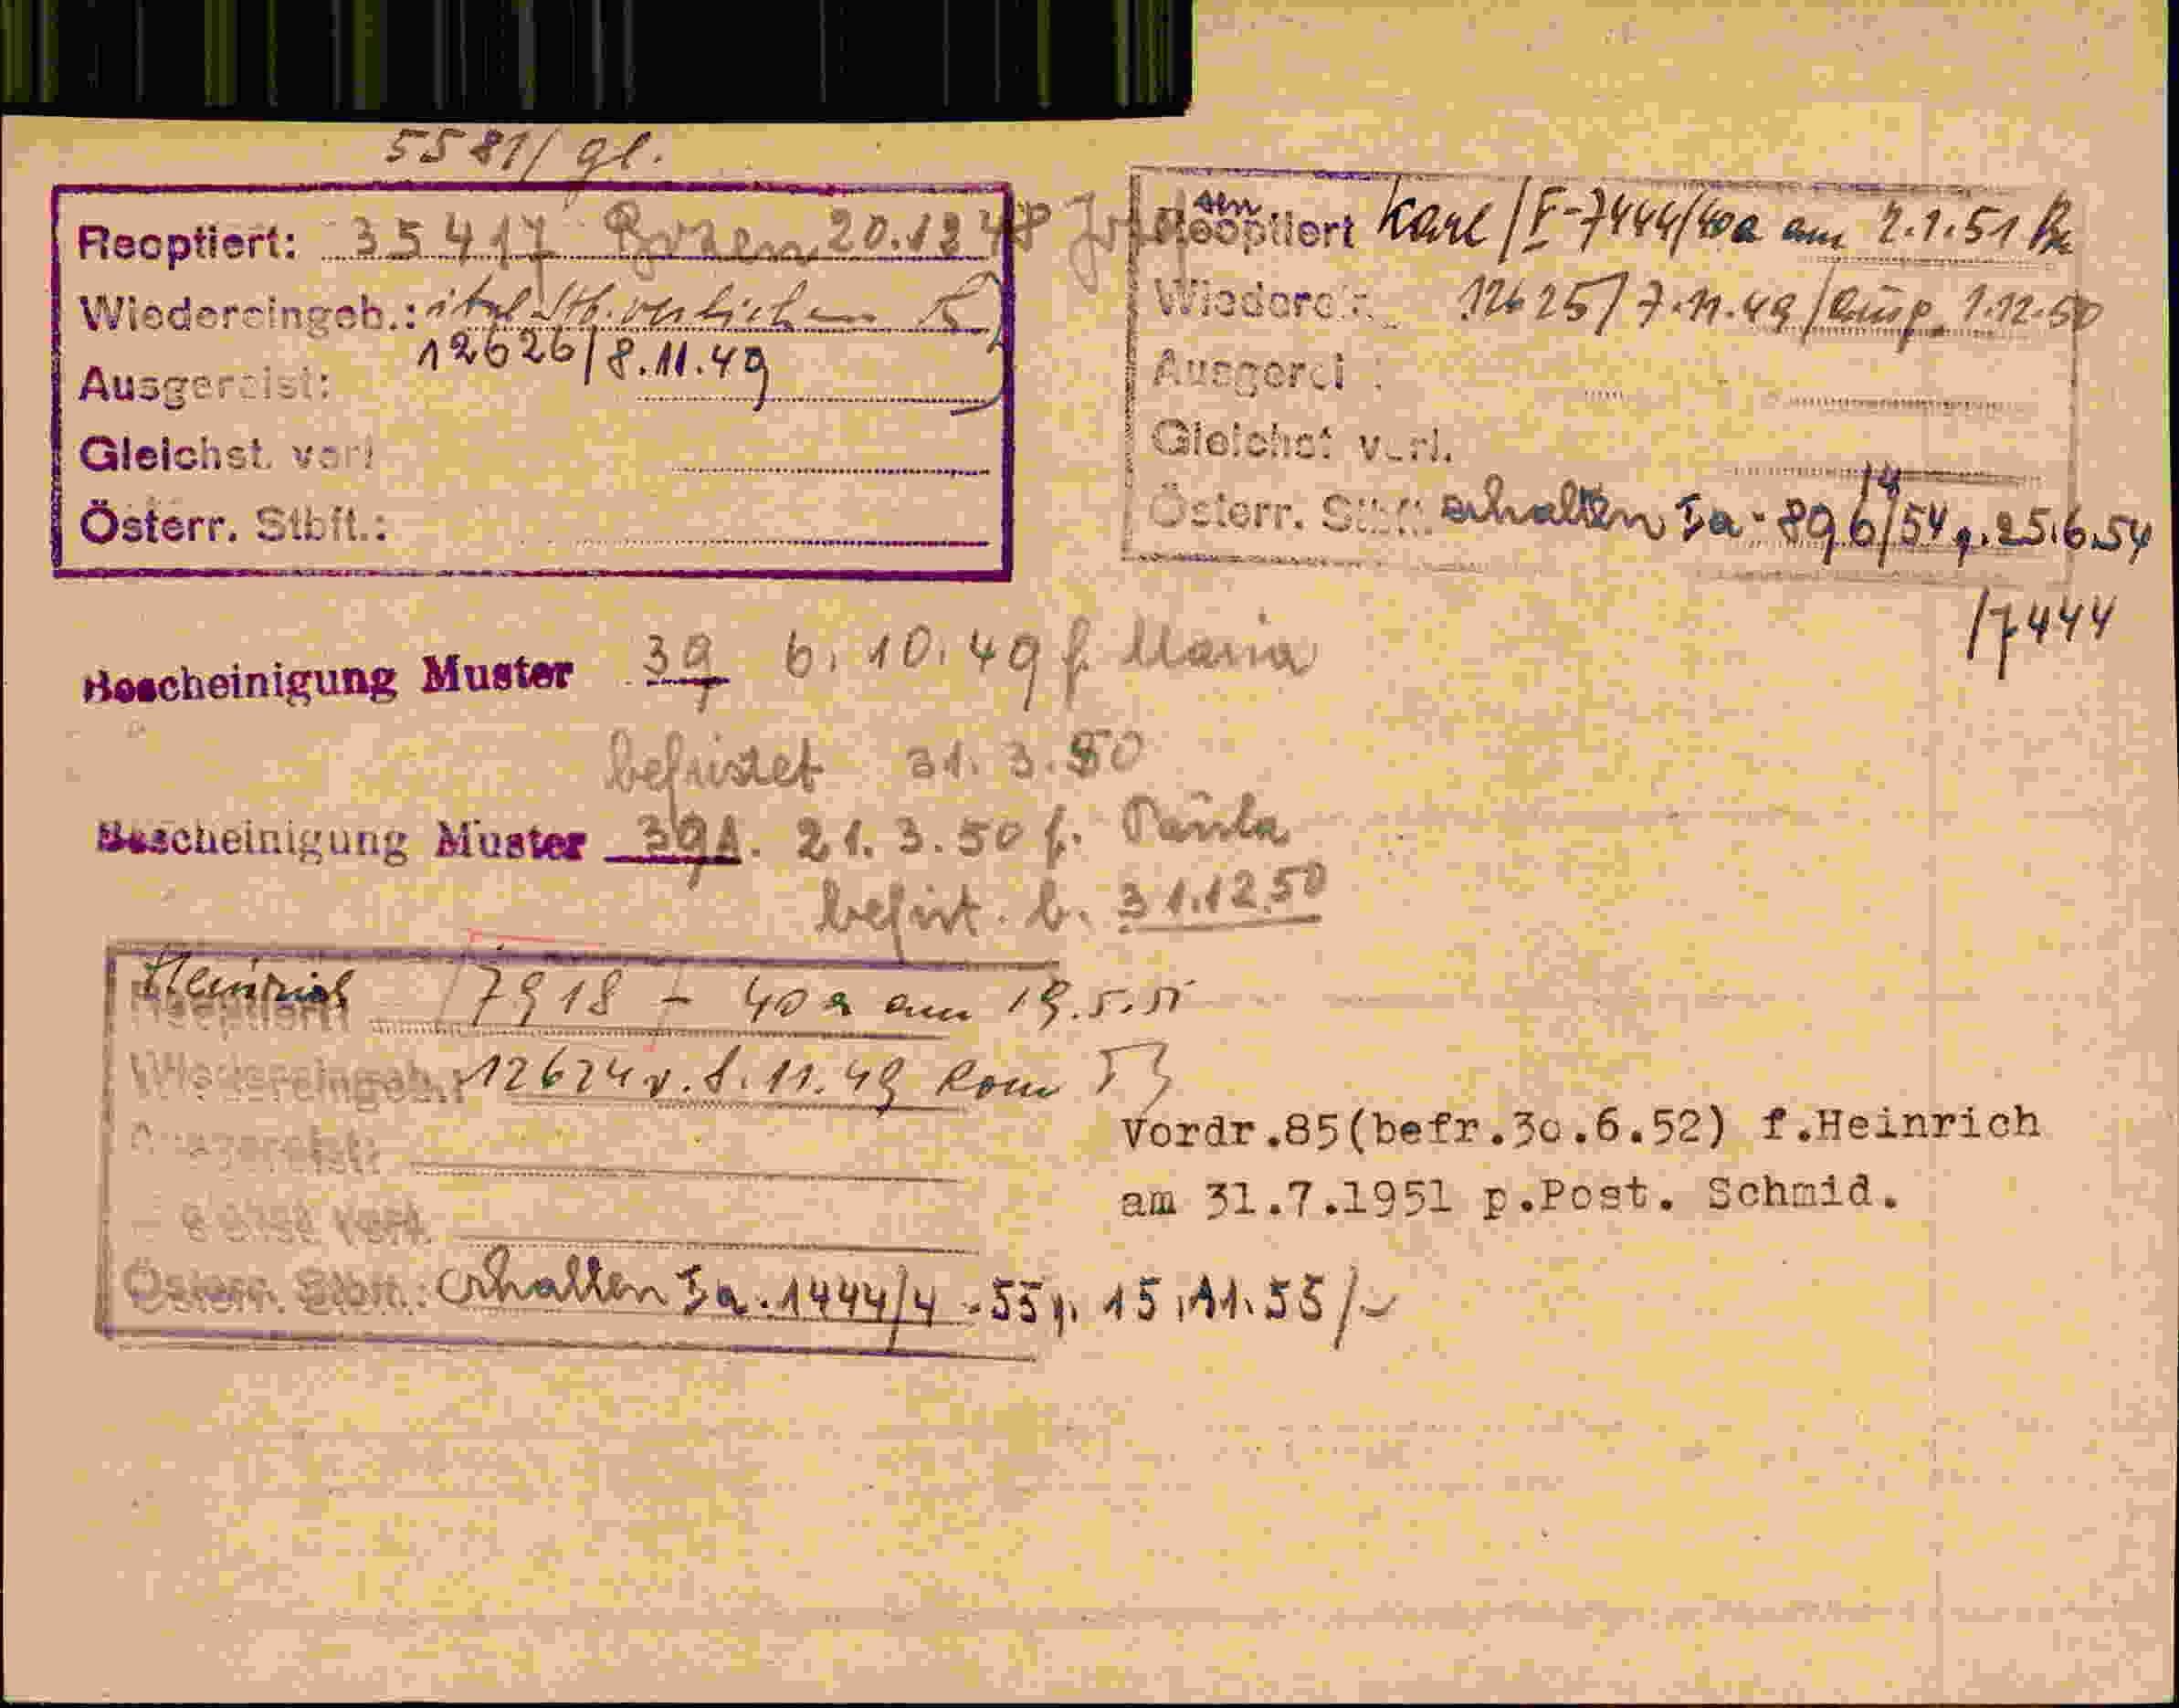 5581/ gl.
Reoptiert: 35417 Bozen 20.1248 Josef
Wiedereingeb.: ital. Stb. verliehen
12626/8.11.49
Ausgereist:
Gleichst. verl.
Österr. Stbft.:
sen
Reoptiert Karl /F-7444/40a am 2.1.51
Wiederein. 12625/7.11.49/ 1.12.50
Ausgerei :
Gleichst verl.
14
Österr. Stbft. erhalten Ia-896/54 p. 25.6.54
/7444
Bescheinigung Muster 39 6.10.49 f. Maria
befristet 31.3.50
Bescheinigung Muster 39A. 21.3.50 f. Paula
befrist. b. 31.12.50
Heinrich
Reoptiert: /7918 - 40a am 19.5.51
Wiedereingeb.: 12624 v. 8.11.49 Rom
Vordr.85(befr.30.6.52) f.Heinrich
Ausgereist:
am 31.7.1951 p.Post. Schmid.
Gleichst verl.
Österr. Stbft.: erhalten Ia.1444/4-55 p. 15.11.55/